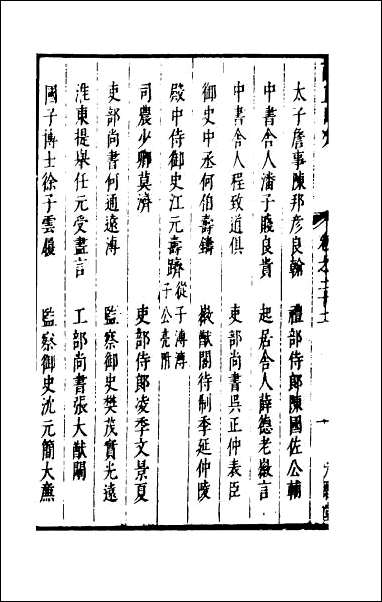 太子詹事陳邦彥良翰　禮部侍郎陳國佐公輔
中書舍人潘子賤良貴　起居舍人薛德老徽言
中書舍人程致道俱　吏部尚書吳正仲表臣
御史中丞何伯壽鑄　徽猷閣待制季延仲陵
殿中侍御史江元壽躋從子溥溥子公亮所
司農少卿莫濟　吏部侍郎凌季文景夏
吏部尚書何通遠溥　監察御史樊茂實光遠
淮東提舉任元受盡言　工部尚書張大猷闡
國子博士徐子雲履　監察御史沈元簡大廉